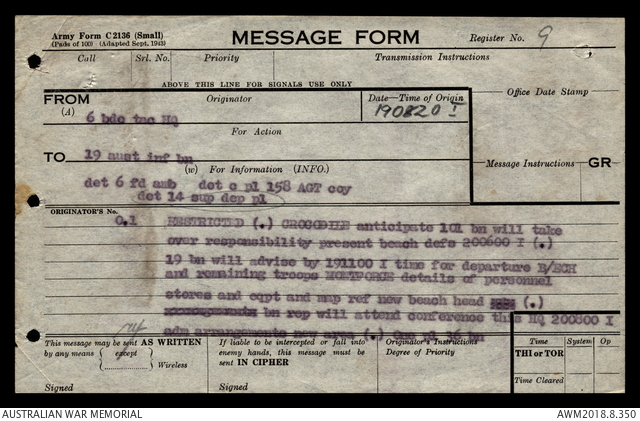 Army Form C2136 (Small)
(Pads of 100) (Adapted Sept. 1943)
MESSAGE FORM
Register No. 9
Call Srl. No. Priority Transmission Instructions
ABOVE THIS LINE FOR SIGNALS USE ONLY
FROM Originator Date—Time of Origin Office Date Stamp
(A) 6 bde tac HQ 190820 I
For Action
TO 19 aust inf bn
(w) For Information (INFO.) Message Instructions GR
det 6 fd amb det c pl 158 AGT coy
det 14 sup dep pl
ORIGINATOR'S No.
O.1 RESTRICTED (.) CROCODILE anticipate 101 bn will take
over responsibility present beach defs 200600 I (.)
19 bn will advise by 191100 I time for departure B/ECH
and remaining troops details of personnel
stores and eqpt and map ref new beach head (.)
bn rep will attend conference this HQ 200800 I
adm arrangements new area (.) One pl 36 bn
This message may be sent AS WRITTEN
by any means (except) Wireless
Signed
If liable to be intercepted or fall into
enemy hands, this message must be
sent IN CIPHER
Signed
Originator's Instructions
Degree of Priority
Time System Op
THI or TOR
Time Cleared
AUSTRALIAN WAR MEMORIAL AWM2018.8.350